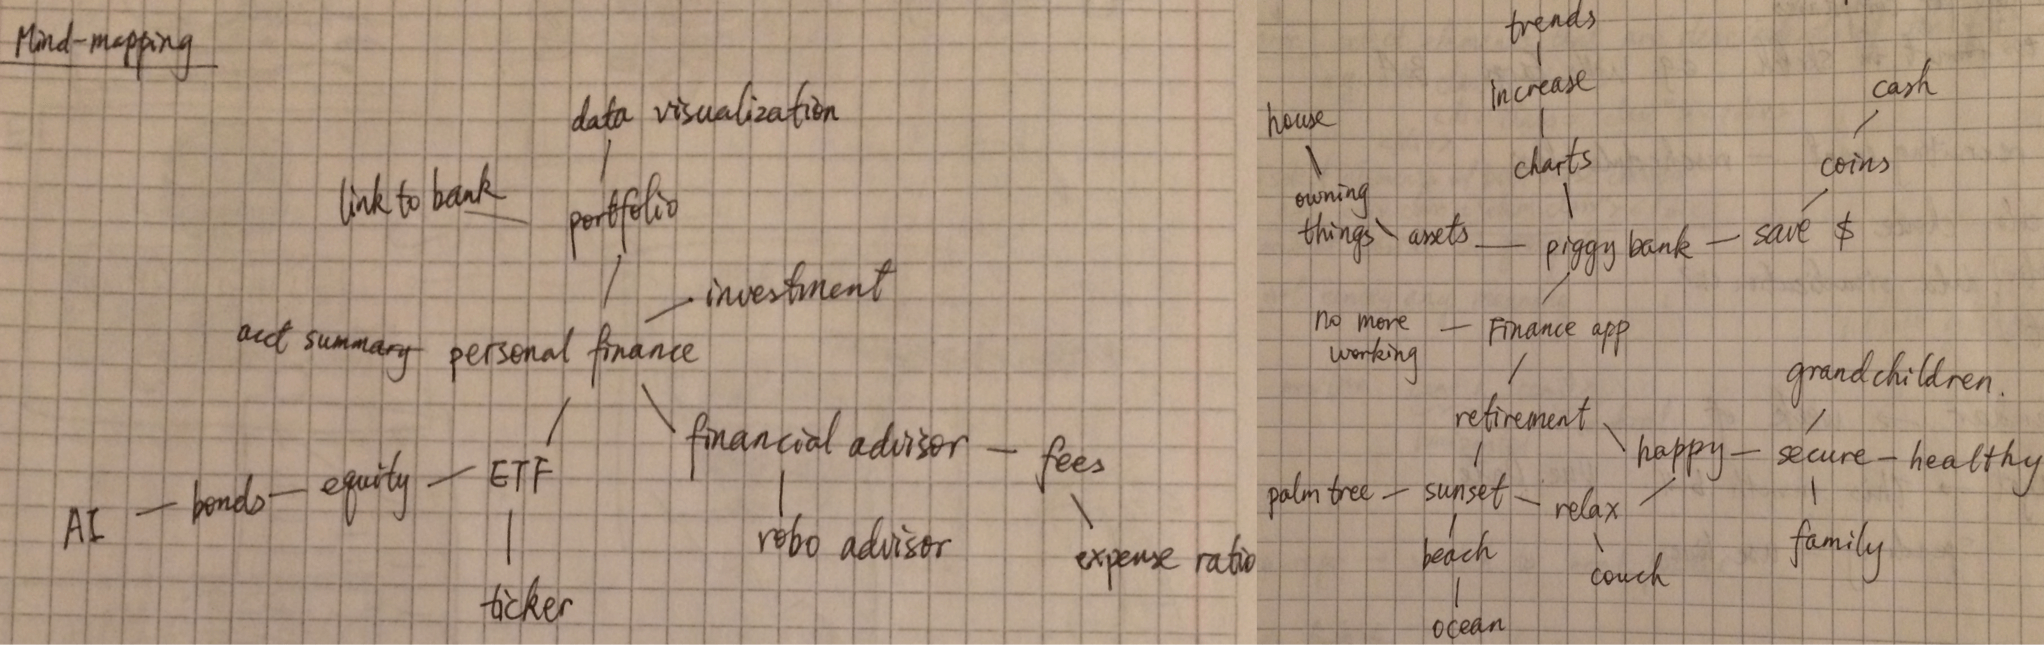 Mind-mapping
data visualization
link to bank
portfolio
investment
acct summary personal finance
financial advisor
fees
AI
bonds
equity
ETF
robo advisor
expense ratio
ticker
trends
increase
cash
house
charts
coins
owning
things
assets
piggy bank
save $
no more
working
Finance app
grandchildren.
retirement
happy
secure
healthy
palm tree
sunset
relax
beach
couch
family
ocean